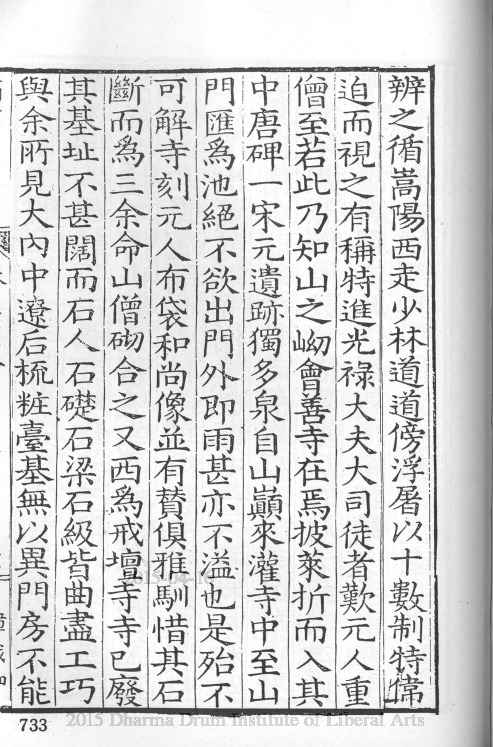 辨之循嵩陽西走少林道道傍浮屠以十數制特偉
迫而視之有稱特進光祿大夫大司徒者歎元人重
僧至若此乃知山之㘭會善寺在焉披萊折而入其
中唐碑一宋元遺跡獨多泉自山巔來灌寺中至山
門匯為池絕不欲出門外即雨甚亦不溢也是殆不
可解寺刻元人布袋和尚像並有贊俱雅馴惜其石
斷而為三余命山僧砌合之又西為戒壇寺寺已廢
其基址不甚闊而石人石礎石梁石級皆曲盡工巧
與余所見大內中遼后梳粧臺基無以異門房不能
733
2015 Dharma Drum Institute of Liberal Arts